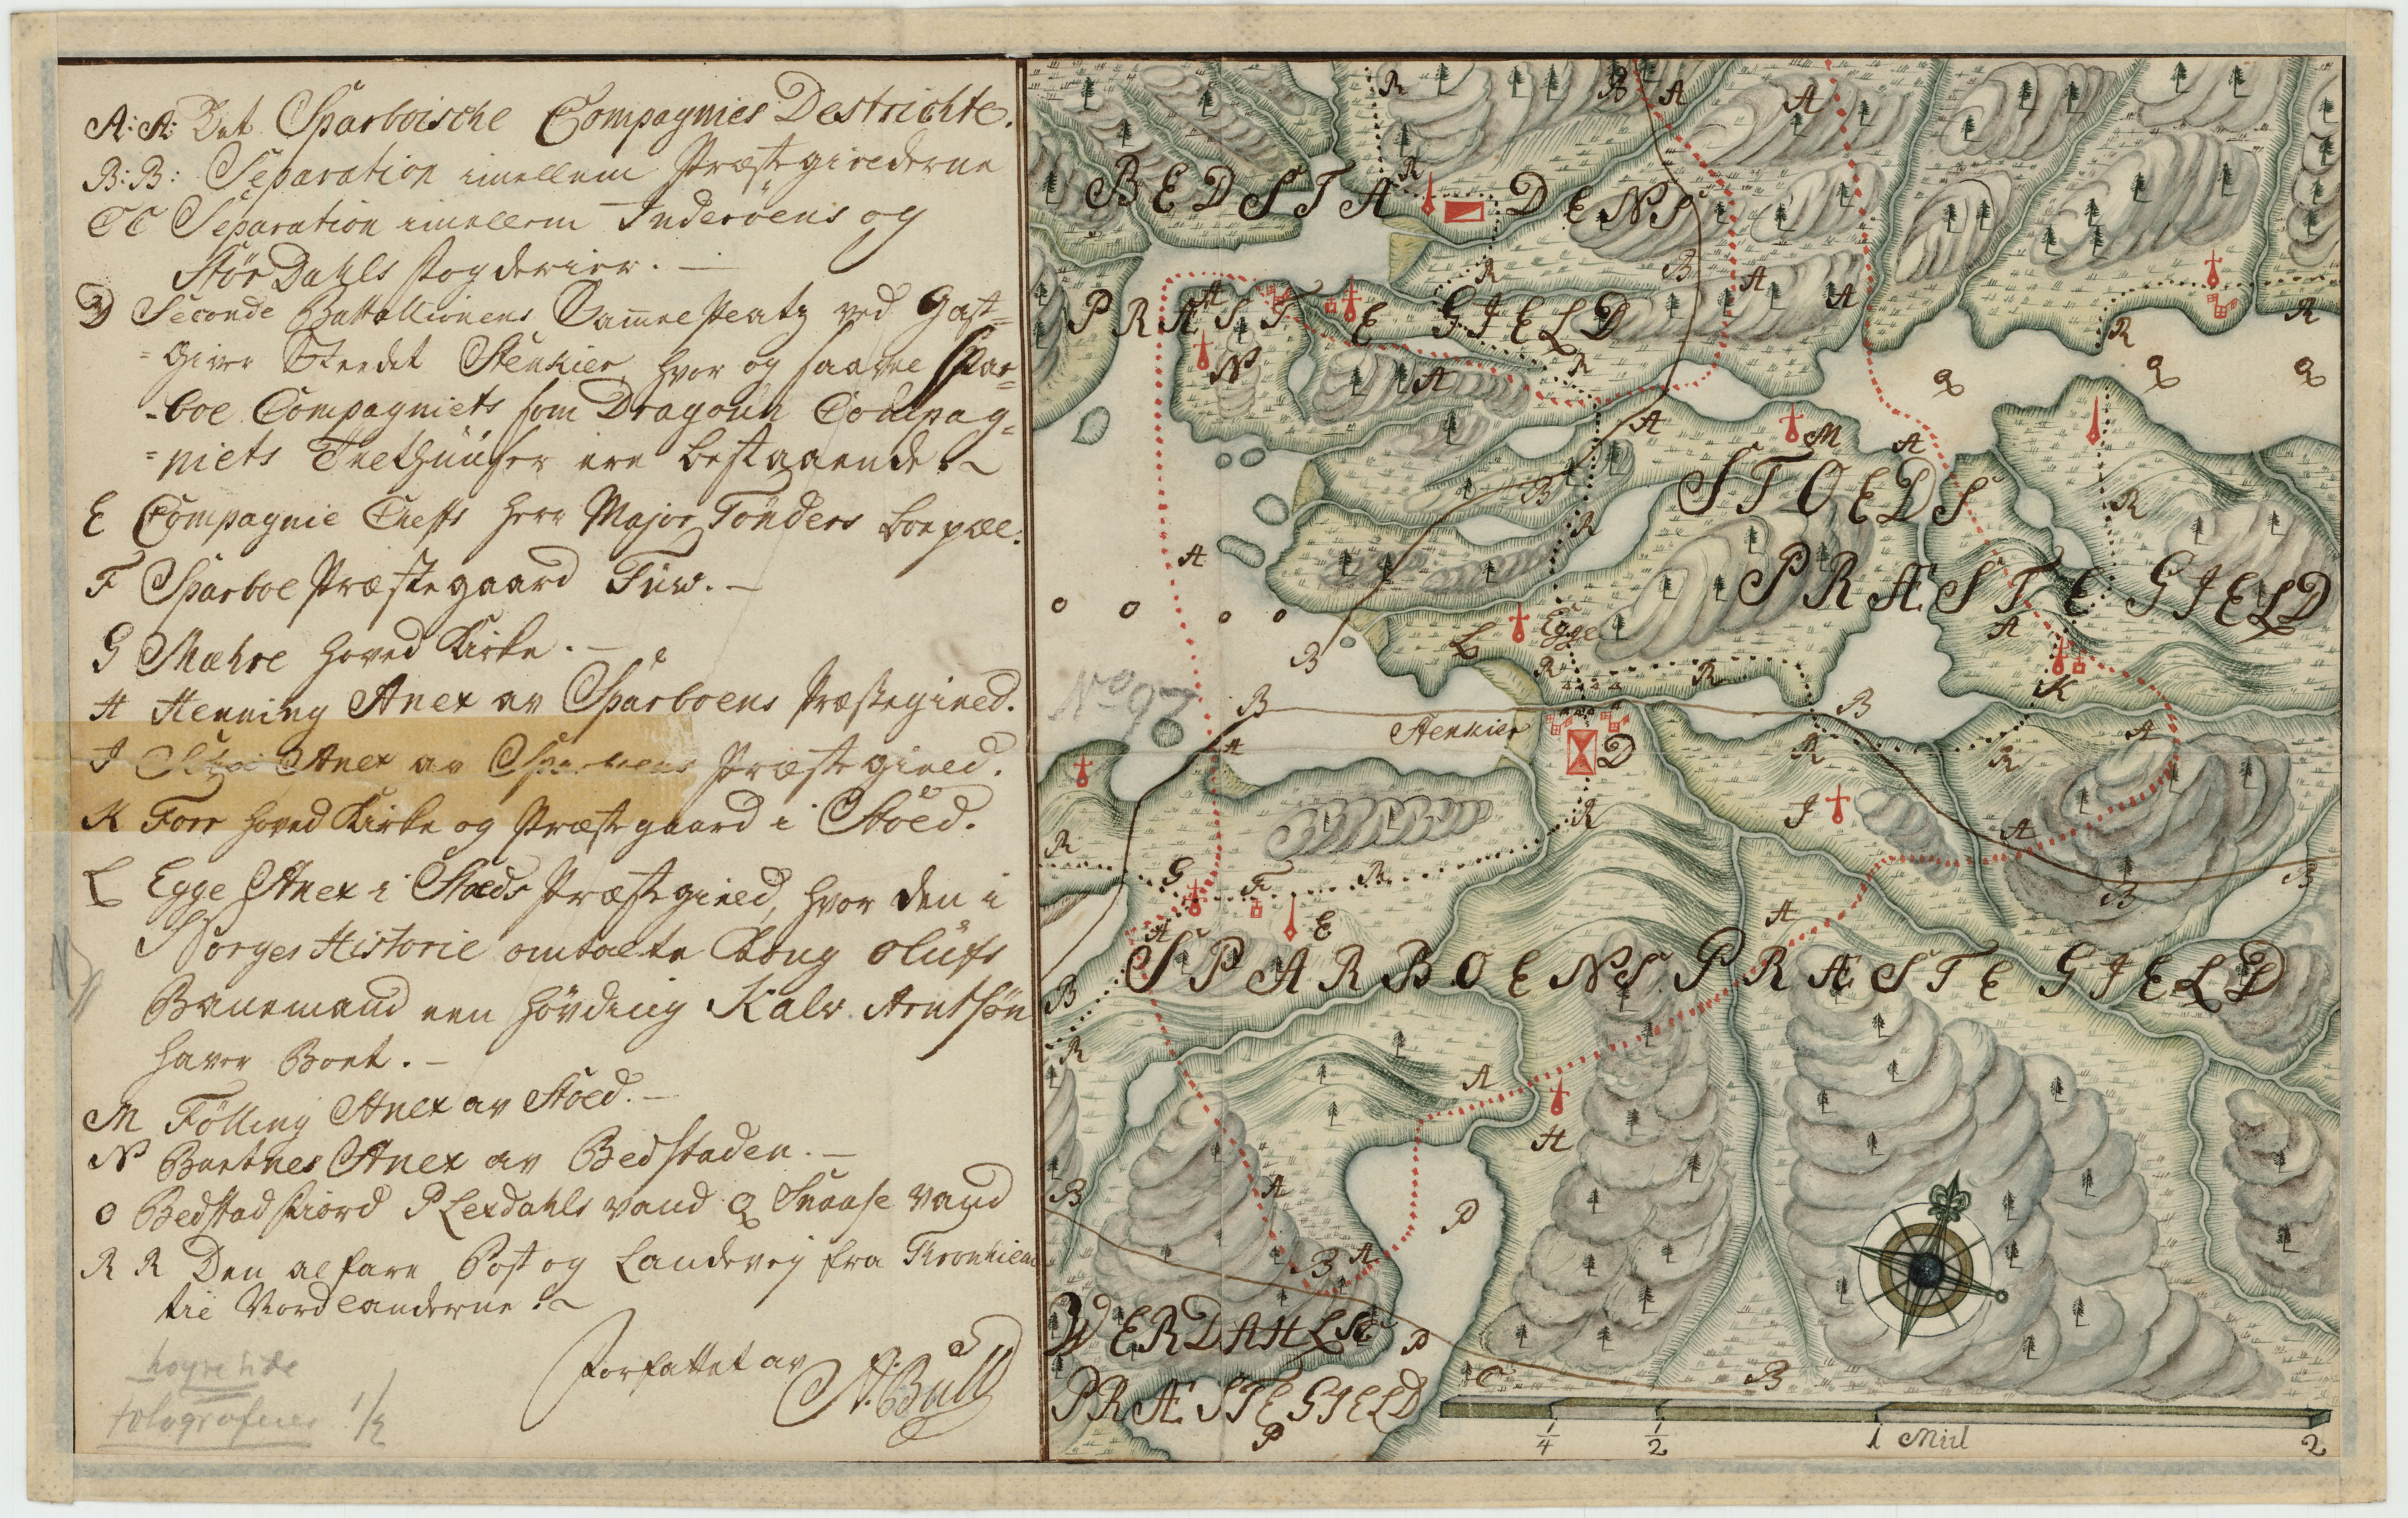 A: A: Det Sparboische Compagnies Destrichte.
B: B: Separation imellem Præstegieederne
CC Separation imellem Inderöens og
StörDahls Fogderier. —
D Seconde Battallionens Sammelpladtz ved Gast=
=giver Steedet Stenkier hvor og saavel Spar=
-boe Compagniets som Dragoun Compag=
=niets TeltHuuser ere bestaaende. ~
E Compagnie Chefs Herr Major Tönders boepæl:
F Sparboe Præstegaard Tuv. —
G Mæhre Hoved Kirke. —
H Henning Anex av Sparboens Præstegield.
J Anex av Sparboens Præstegield.
K Forr Hoved Kirke og Præstegaard i Stöed.
L Egge Anex i Stoeds Præstegield, hvor den i
Norges Historie omtalte Kong Olufs
Banemand een Hövding Kalv Arntsön
haver Boet. —
M Fölling Anex av Stöed. —
N Bartnes Anex av Bedstaden. —
O Bedstad Fiord P Lexdahls vand Q Snaase Vand
R R Den alfare Post og Landevej fra Tronhiem
til Nordlanderne. ~
Forfattet av
Bull
høyre side
fotograferes 1/2
No 97
BEDSTADENS
PRÆSTE GIELD
STOEDS
PRÆSTE GIELD
Egge
Stenkier
SPARBOENS PRÆSTE GIELD
WERDAHLS
PRÆSTEGIELD
A
B
C
D
E
F
G
H
J
K
L
M
N
O
P
Q
R
1/4
1/2
1 Miil
2